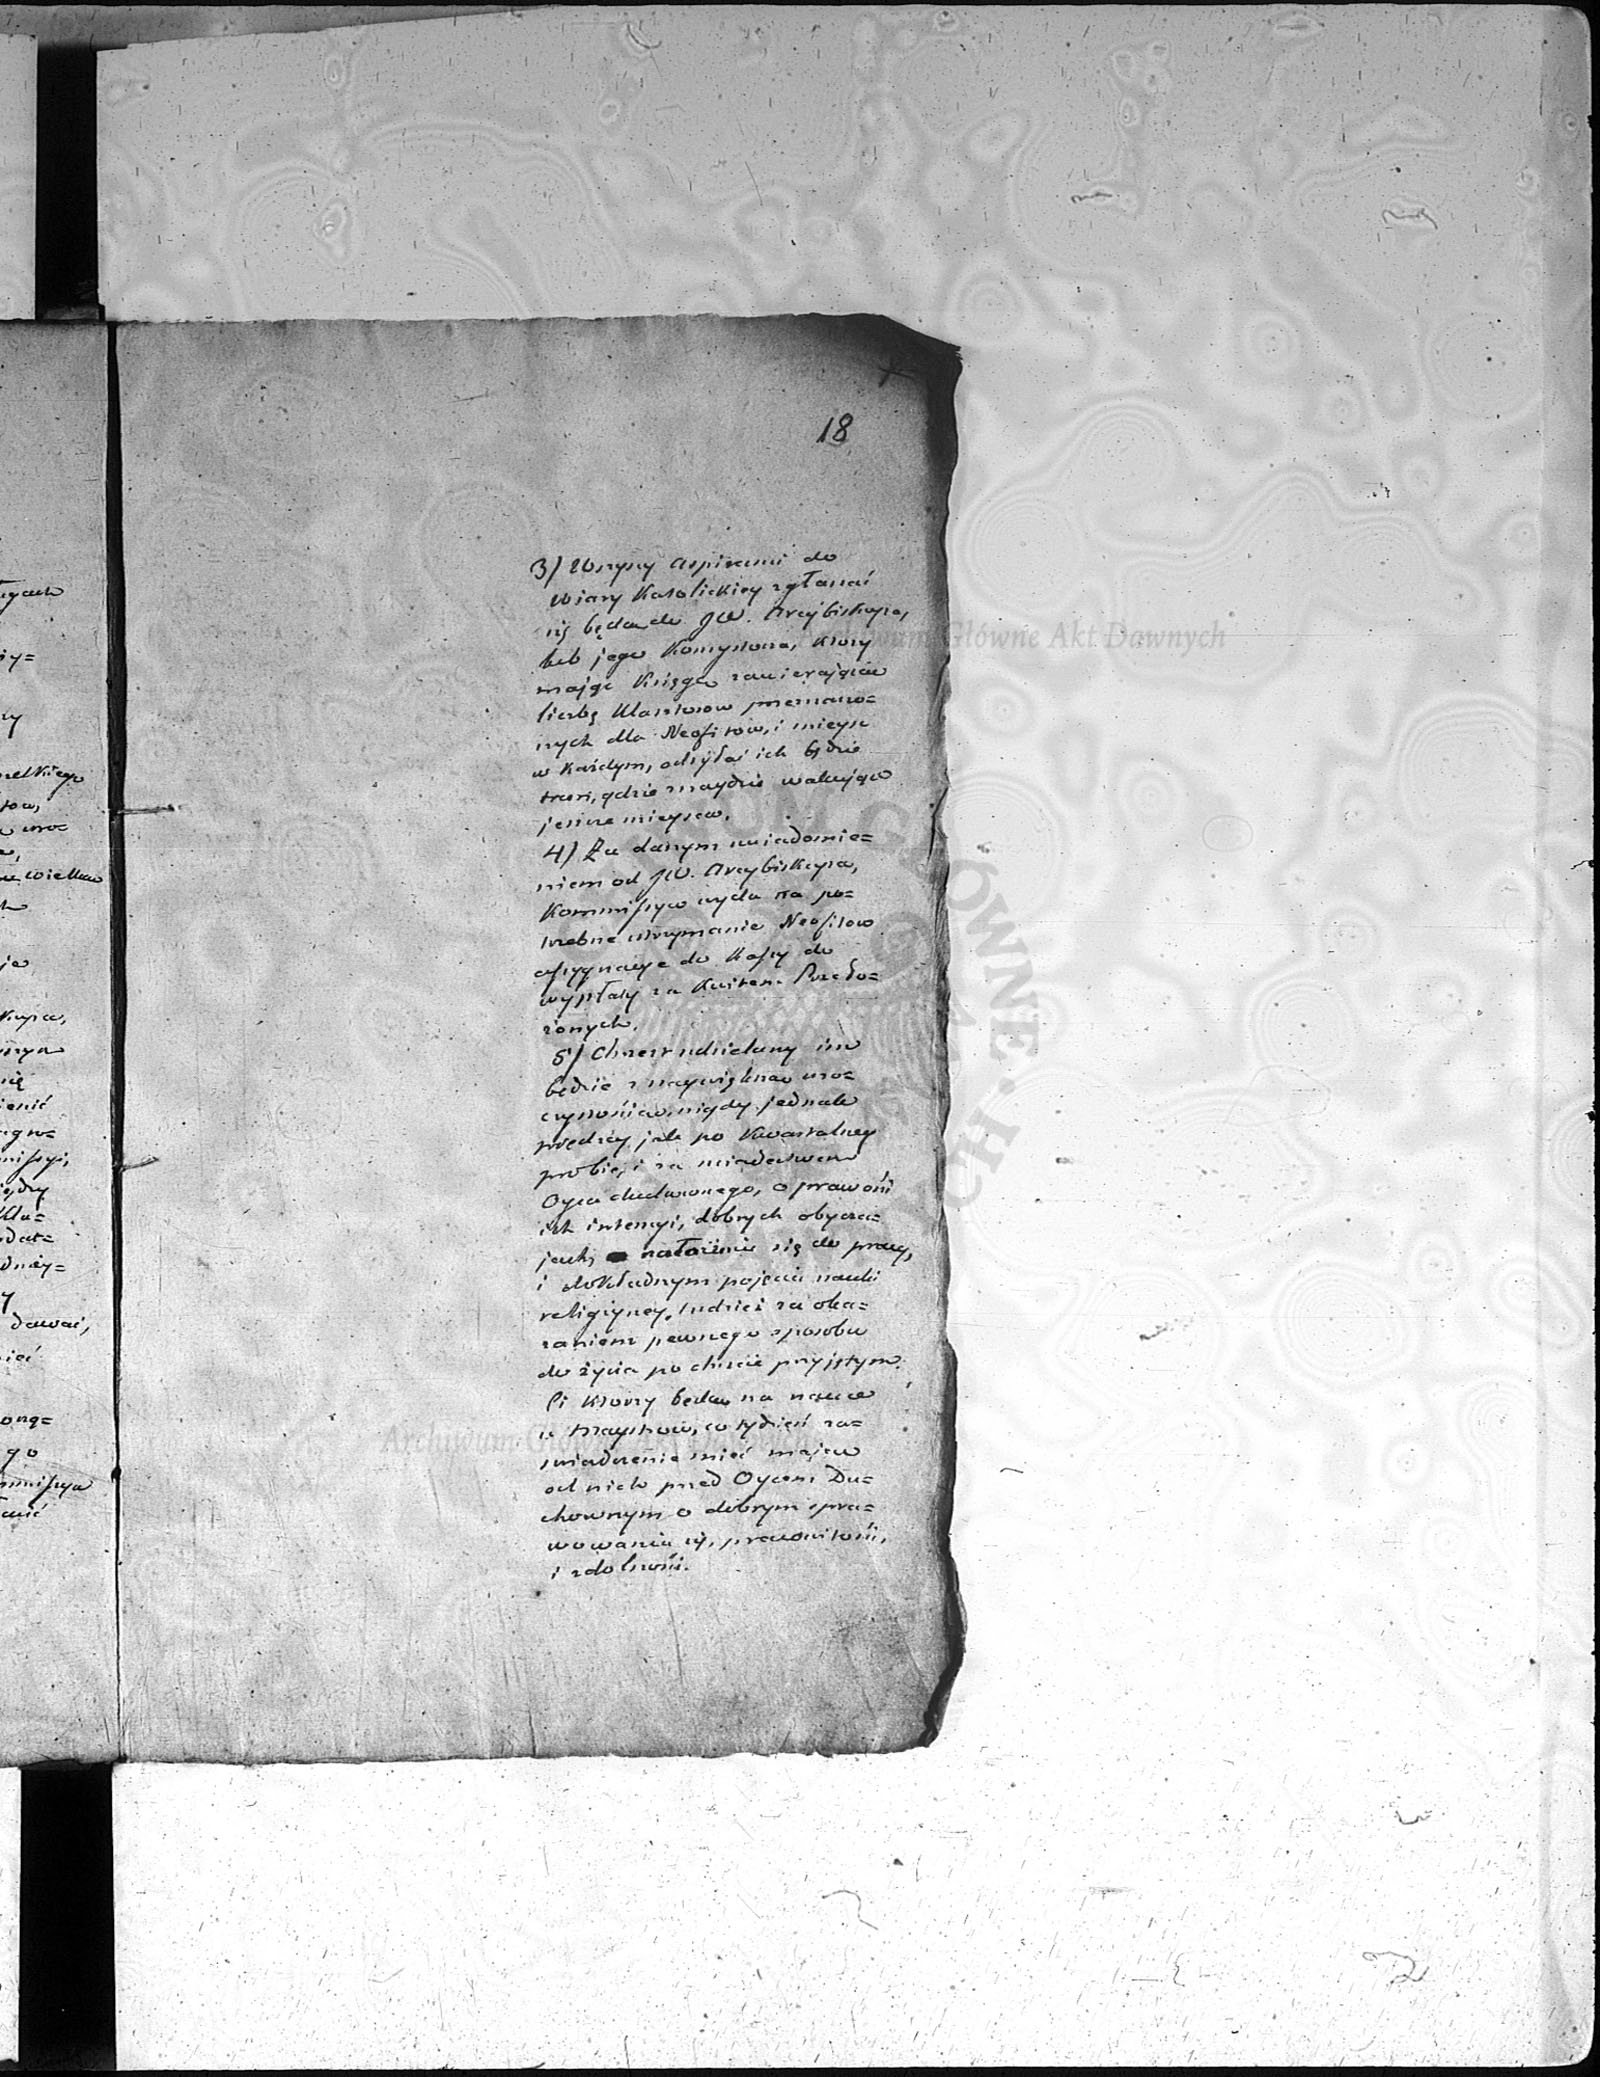 18
3) Wszyscy aspiranci do
wiary Katolickiey zgłaszać
się będą do JW. Arcybiskupa,
lub jego Kommissarza, ktory
mając Księgę zawierającą
liczbę Klasztorow przeznaczo=
nych dla Neofitow, i mieysc
w każdym, odsyłać ich będzie
tam, gdzie znaydzie wakujące
jeszcze mieysca.
4) Za danym uwiadomie=
niem od JW. Arcybiskupa,
Kommissya wyda na po=
trzebne utrzymanie Neofitow
assygnacye do Kassy do
wypłaty za Kwitem Przeło=
żonych.
5) Chrzest udzielany im
będzie z naywiększą uro=
czystością, nigdy jednak
prędzey jak po Kwartalney
probie, i za świadectwem
Oyca duchownego, o prawości
ich intencyi, dobrych obycza=
jach, nałożeniu się do pracy,
i dokładnym pojęciu nauki
religiyney, tudzież za oka=
zaniem pewnego sposobu
do życia po chrzcie przyjętym.
Ci ktorzy będą na nauce
u Maystrow, co tydzień za=
świadczenie mieć mają
od nich przed Oycem Du=
chownym o dobrym spra=
wowaniu się, pracowitości,
i zdolności.
Archiwum Główne Akt Dawnych